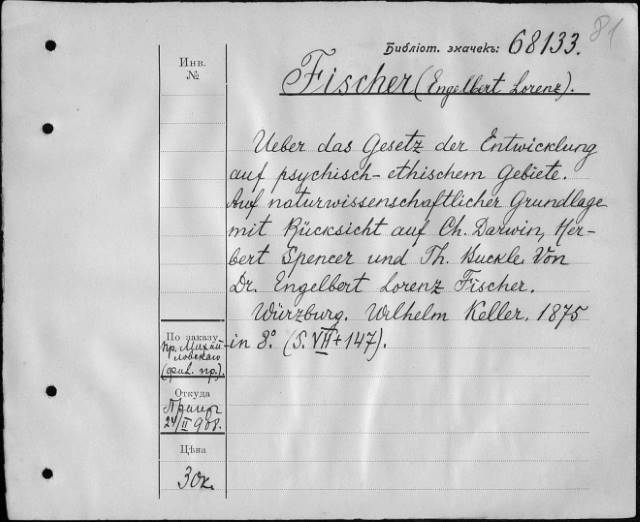 81
Библіот. значекъ: 68133.
Инв.
№
Fischer (Engelbert Lorenz).
Ueber das Gesetz der Entwicklung
auf psychisch-ethischem Gebiete.
Auf naturwissenschaftlicher Grundlage
mit Rücksicht auf Ch. Darwin, Her-
bert Spencer und Th. Buckle. Von
Dr. Engelbert Lorenz Fischer.
Würzburg. Wilhelm Keller. 1875
in 8.° (S. VII + 147).
По заказу
пр.
ловскаго
(фил. пр.).
Откуда
24/II 908.
Цѣна
30к.